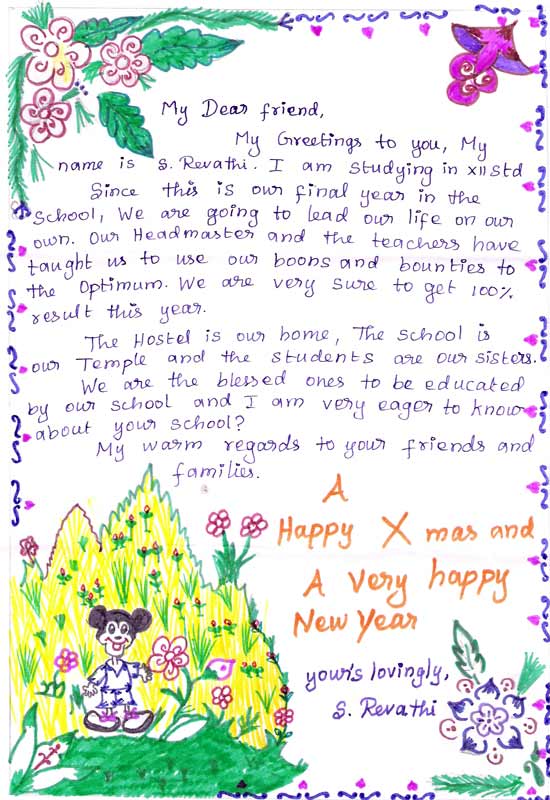 My Dear friend,
My Greetings to you, My
name is S. Revathi. I am studying in XII std
Since this is our final year in the
School, We are going to lead our life on our
own. Our Headmaster and the teachers have
taught us to use our boons and bounties to
the Optimum. We are very sure to get 100%
result this year.
The Hostel is our home, The School is
our Temple and the students are our sisters.
We are the blessed ones to be educated
by our school and I am very eager to know
about your school?
My warm regards to your friends and
families.
A
Happy X mas and
A very happy
New Year
your's lovingly,
S. Revathi